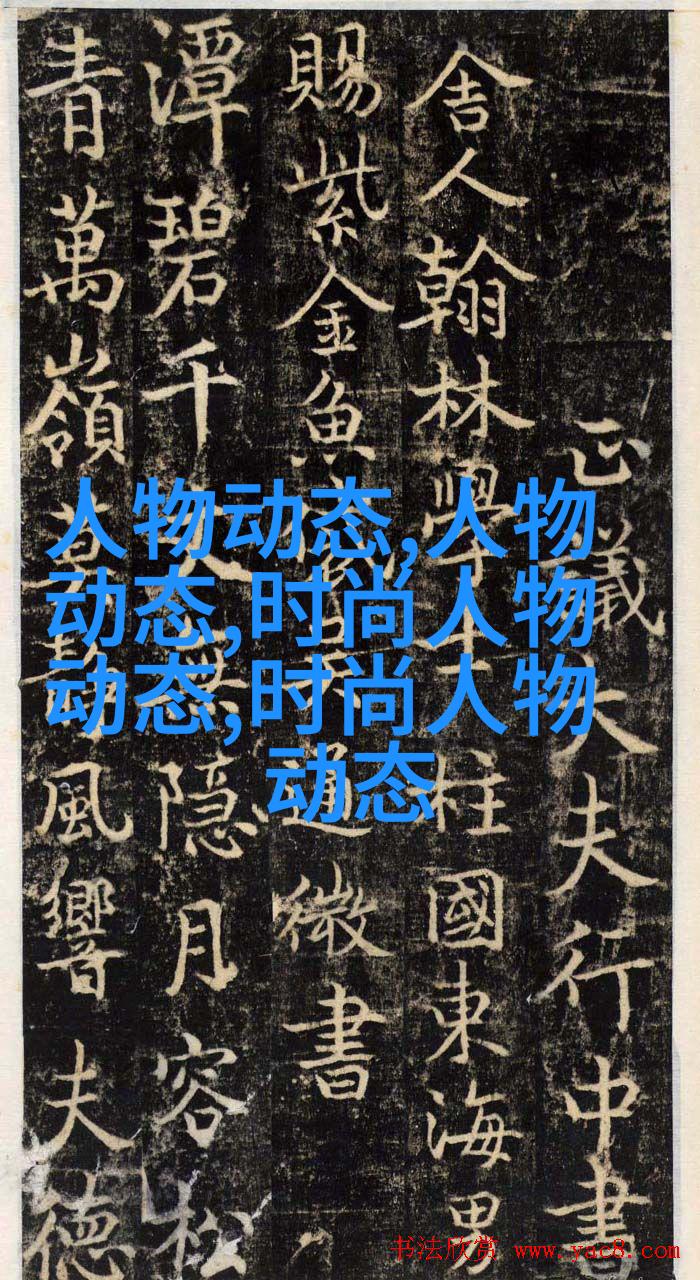 正議大夫行中書
舍人翰林學士柱國東海男
賜紫金魚通微書
潭碧千無隐月容松
青萬嶺風響夫德
人物动态,人物
动态,时尚人物
动态,时尚人物
动态
书法欣赏 www.yac8.com